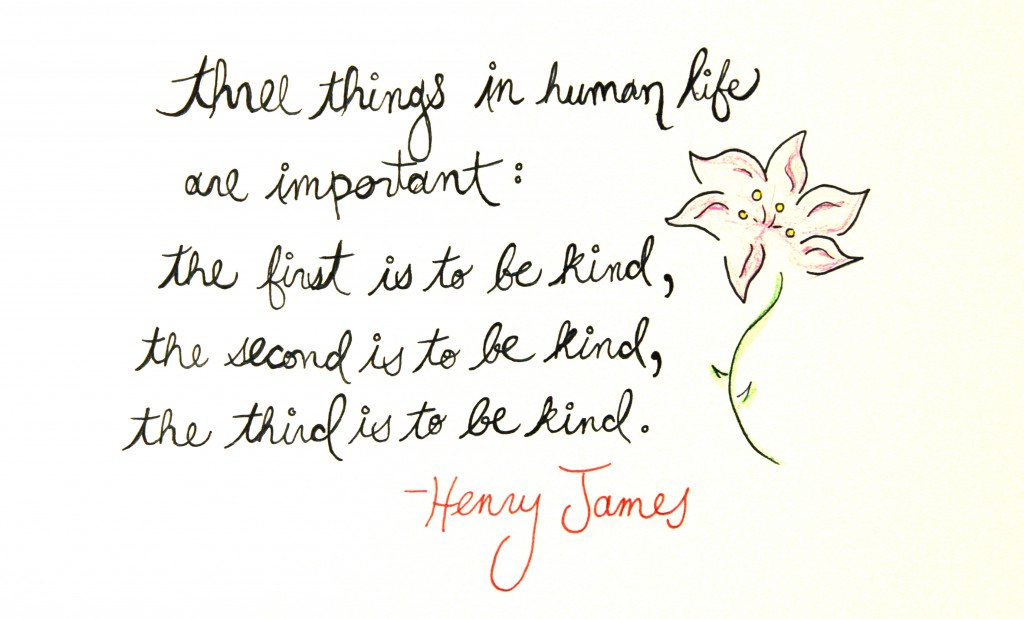 three things in human life
are important:
the first is to be kind,
the second is to be kind,
the third is to be kind.
-Henry James